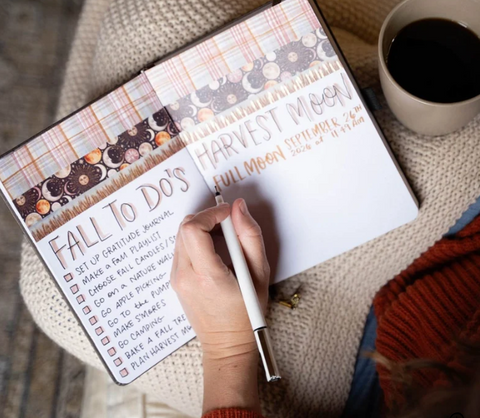 FALL TO DO'S
SET UP GRATITUDE JOURNAL
MAKE A FALL PLAYLIST
CHOOSE FALL CANDLES/
GO ON A NATURE WALK
GO APPLE PICKING
GO TO THE
MAKE S'MORES
GO CAMPING
BAKE A FALL
PLAN HARVEST
HARVEST MOON
FULL MOON SEPTEMBER 26TH
2026 at